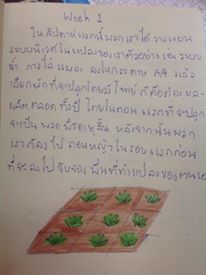 Week 1
ในสัปดาห์แรกนี้พวกเราได้วางแผน
ระบบนิเวศในแปลงของเราตัวอย่างเช่น ระบบ
น้ำ การไล่แมลง ลงในกระดาษ A4 แล้ว
เลือกผักที่จะปลูกโดยมีโจทย์ ก็คือต้อง
ผลิตตลอดทั้งปี โดยในตอนแรกที่จะปลูก
จะเป็นพวกพืชอายุสั้น หลังจากนั้นพวก
เราก็ลงไป ถอนหญ้าในรอบแรกก่อน
ที่จะลงไปจับจอง พื้นที่ทำแปลงของตนเอง